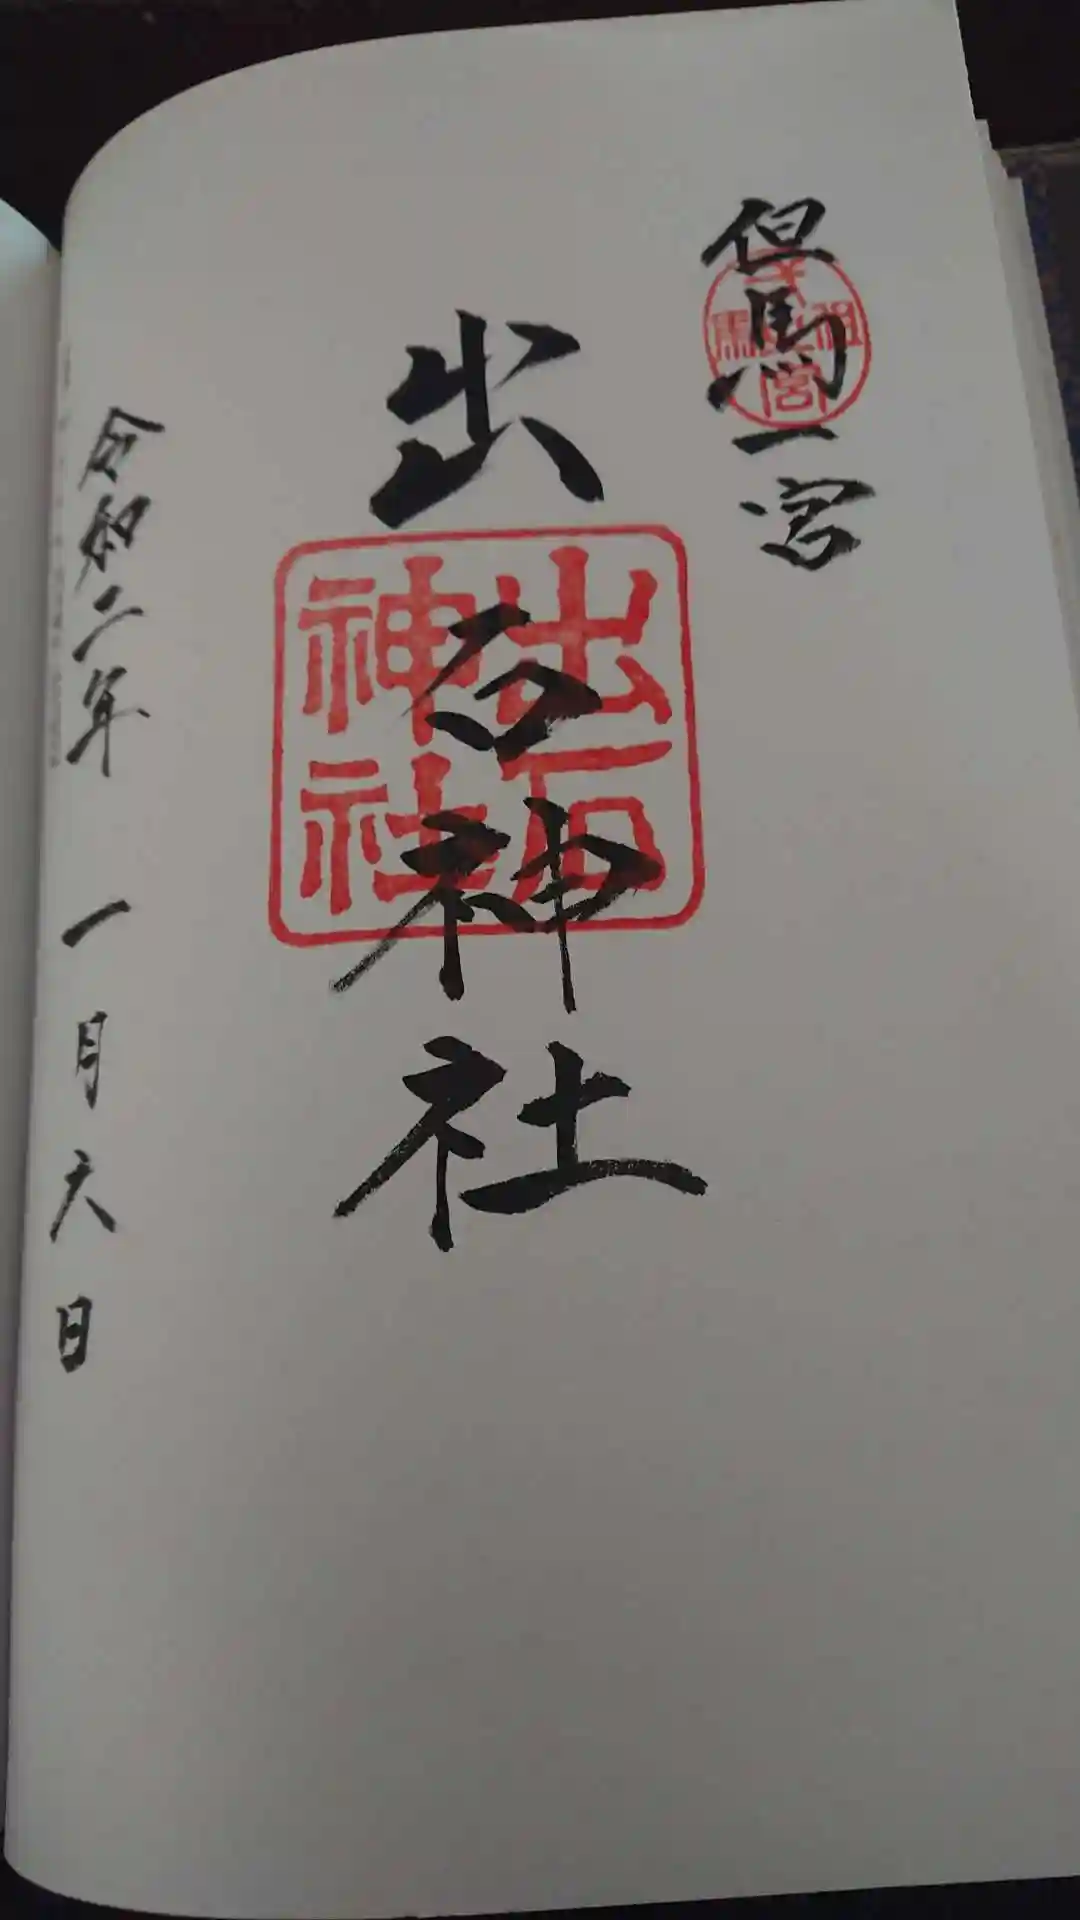 但馬一宮
出石神社
出石
神社
令和二年 一月六日